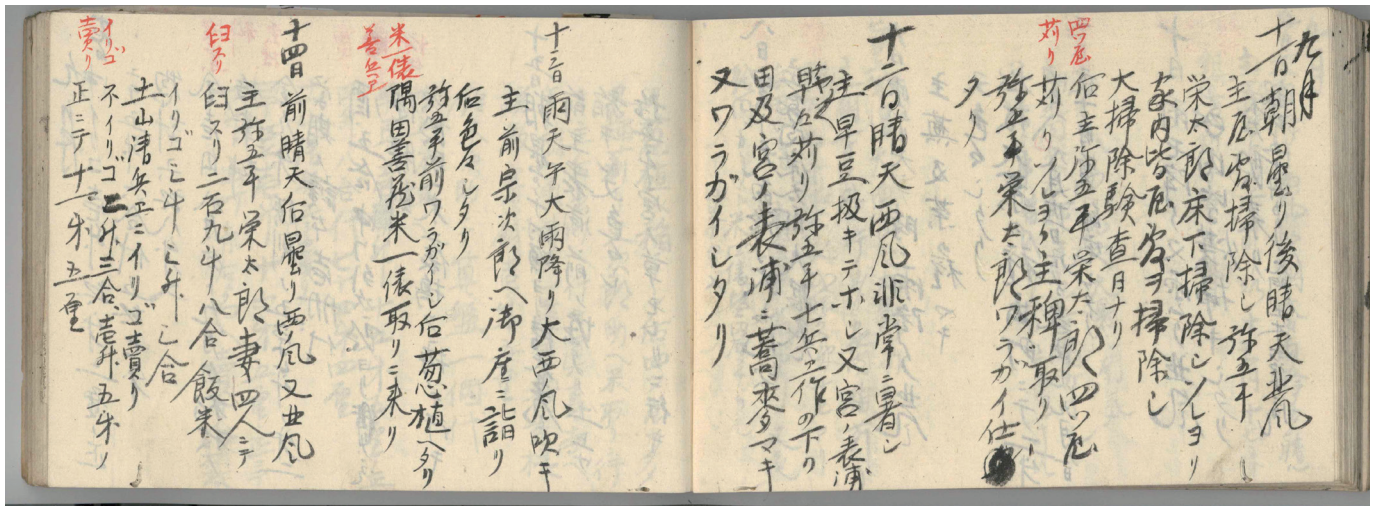 九月
十一日朝曇り後晴天北風
主屋敷掃除し弥五平
栄太郎床下掃除シソレヨリ
家内皆屋敷ヲ掃除し
大掃除験査日ナリ
四ツ屋
苅り
右主弥五平栄太郎四ツ屋
苅りソレヨリ主稗取り
弥五平栄太郎ワラガイ仕
タリ
十二日晴天西風非常ニ暑し
主早豆扱キテホし又宮ノ表浦
苅り弥五平七兵工作の下り
田及宮ノ表浦ニ蕎麦マキ
又ワラガイシタリ
十三日雨天午大雨降り大西ノ風吹キ
主前宗次郎へ御座ニ詣り
后色々シタリ
弥五平前ワラガイシ后葱植ヘタリ
米一俵
善兵エ
隅田善兵エ米一俵取りニ来り
十四日前晴天后曇り西ノ風又北風
主弥五平栄太郎妻四人ニテ
臼スリ
臼スリ二石九斗八合飯米
イリゴ三斗三升三合
イリゴ
賣り
土山清兵エニイリゴ賣り
不イリゴ二升三合壱升五朱ノ
正ニテ十一朱五厘